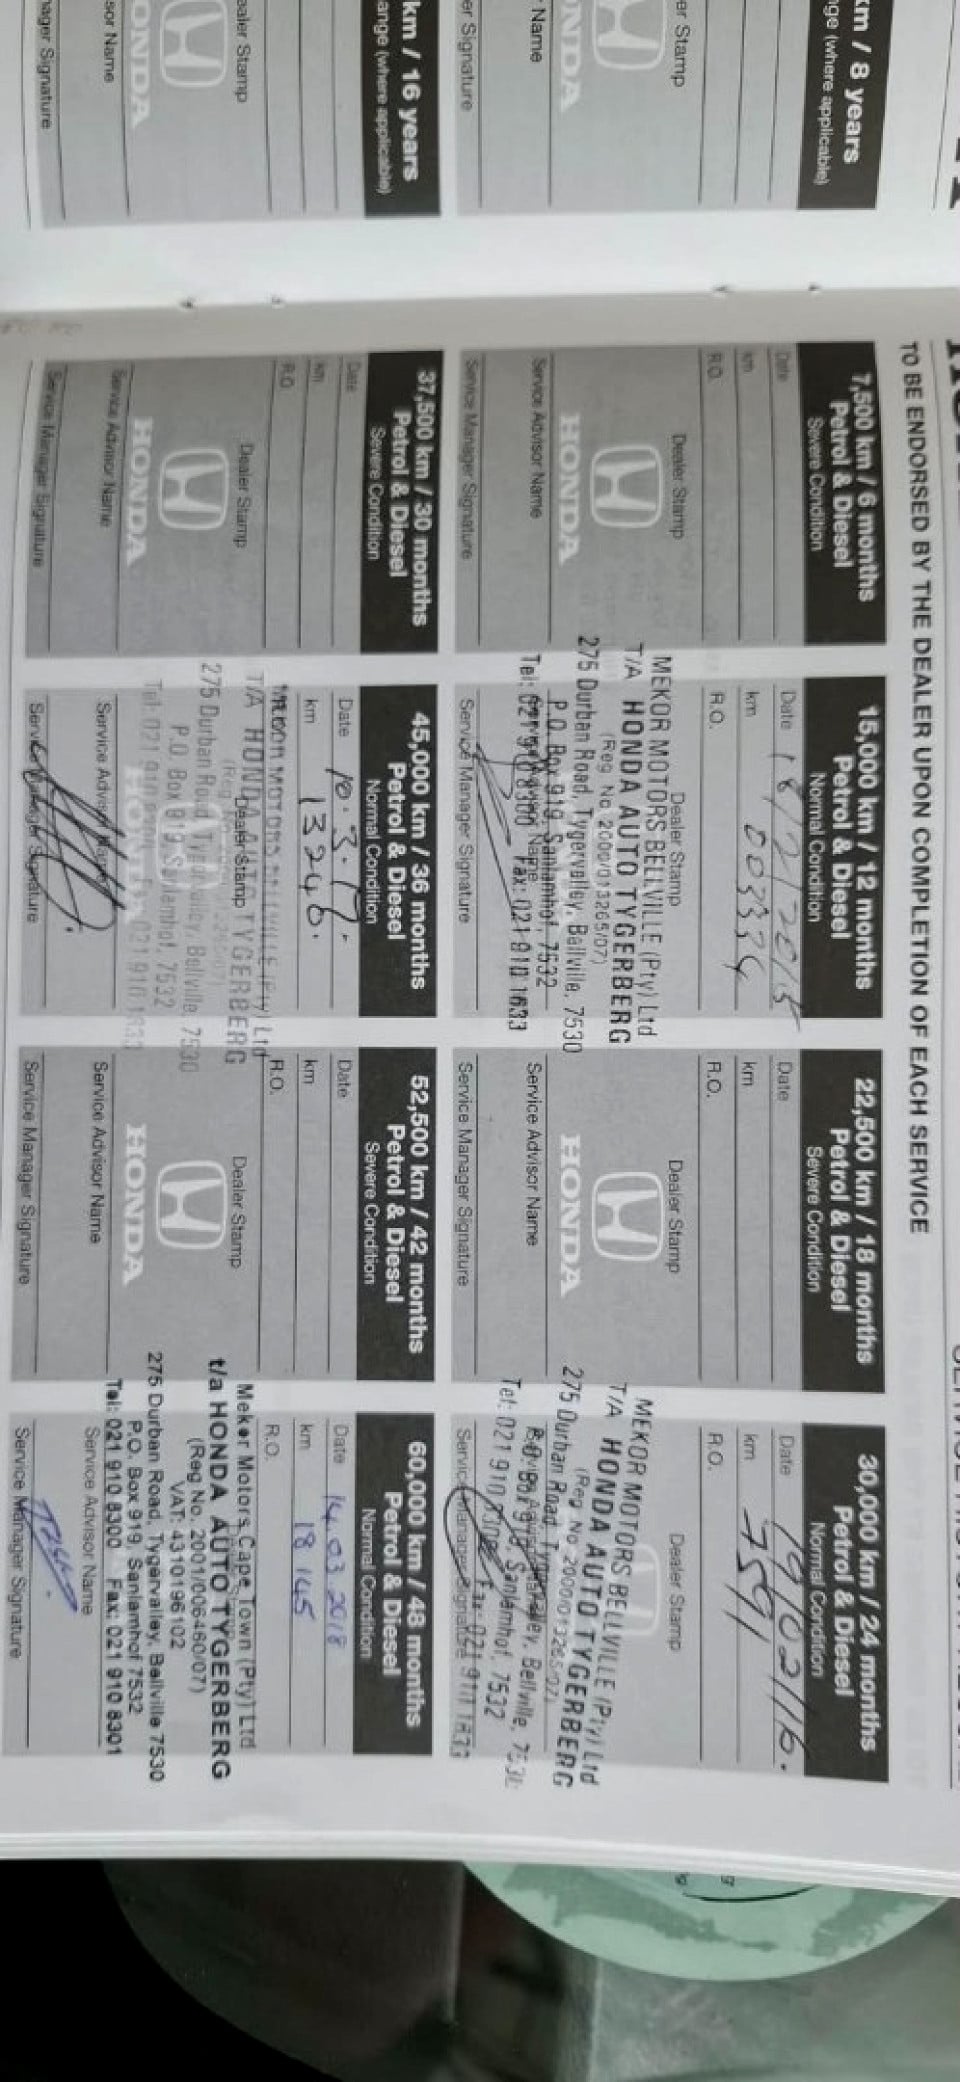 km / 8 years
nge (where applicable)
er Stamp
HONDA
r Name
er Signature
km / 16 years
ange (where applicable)
ealer Stamp
HONDA
sor Name
nager Signature
TO BE ENDORSED BY THE DEALER UPON COMPLETION OF EACH SERVICE
7,500 km / 6 months
Petrol & Diesel
Severe Condition
Date
km
R.O.
Dealer Stamp
HONDA
Service Advisor Name
Service Manager Signature
15,000 km / 12 months
Petrol & Diesel
Normal Condition
Date 18/2/2015
km 003334
R.O.
Dealer Stamp
MEKOR MOTORS BELLVILLE (Pty) Ltd
T/A HONDA AUTO TYGERBERG
(Reg No. 2000/013265/07)
275 Durban Road, Tygervalley, Bellville, 7530
P.O. Box 919, Sanlamhof, 7532
Tel: 021 910 8300 Fax: 021 910 1633
Service Manager Signature
22,500 km / 18 months
Petrol & Diesel
Severe Condition
Date
km
R.O.
Dealer Stamp
HONDA
Service Advisor Name
Service Manager Signature
30,000 km / 24 months
Petrol & Diesel
Normal Condition
Date 19/02/16.
km 7591
R.O.
Dealer Stamp
MEKOR MOTORS BELLVILLE (Pty) Ltd
T/A HONDA AUTO TYGERBERG
(Reg No. 2000/013265/07)
275 Durban Road, Tygervalley, Bellville, 7530
P.O. Box 919, Sanlamhof, 7532
Tel: 021 910 8300 Fax: 021 910 1633
Service Manager Signature
37,500 km / 30 months
Petrol & Diesel
Severe Condition
Date
km
R.O.
Dealer Stamp
HONDA
Service Advisor Name
Service Manager Signature
45,000 km / 36 months
Petrol & Diesel
Normal Condition
Date 10.3.17.
km 13246.
MEKOR MOTORS BELLVILLE (Pty) Ltd
T/A HONDA AUTO TYGERBERG
Dealer Stamp
275 Durban Road, Tygervalley, Bellville, 7530
P.O. Box 919, Sanlamhof, 7532
Tel: 021 910 8300 Fax: 021 910 1633
HONDA
Service Advisor Name
Service Manager Signature
52,500 km / 42 months
Petrol & Diesel
Severe Condition
Date
km
R.O.
Dealer Stamp
HONDA
Service Advisor Name
Service Manager Signature
60,000 km / 48 months
Petrol & Diesel
Normal Condition
Date 14.03.2018
km 18145
R.O.
Mekor Motors Cape Town (Pty) Ltd
t/a HONDA AUTO TYGERBERG
(Reg No. 2001/006460/07)
VAT: 4310196102
275 Durban Road, Tygervalley, Bellville 7530
P.O. Box 919, Sanlamhof 7532
Tel: 021 910 8300 Fax: 021 910 8301
Service Advisor Name
Service Manager Signature